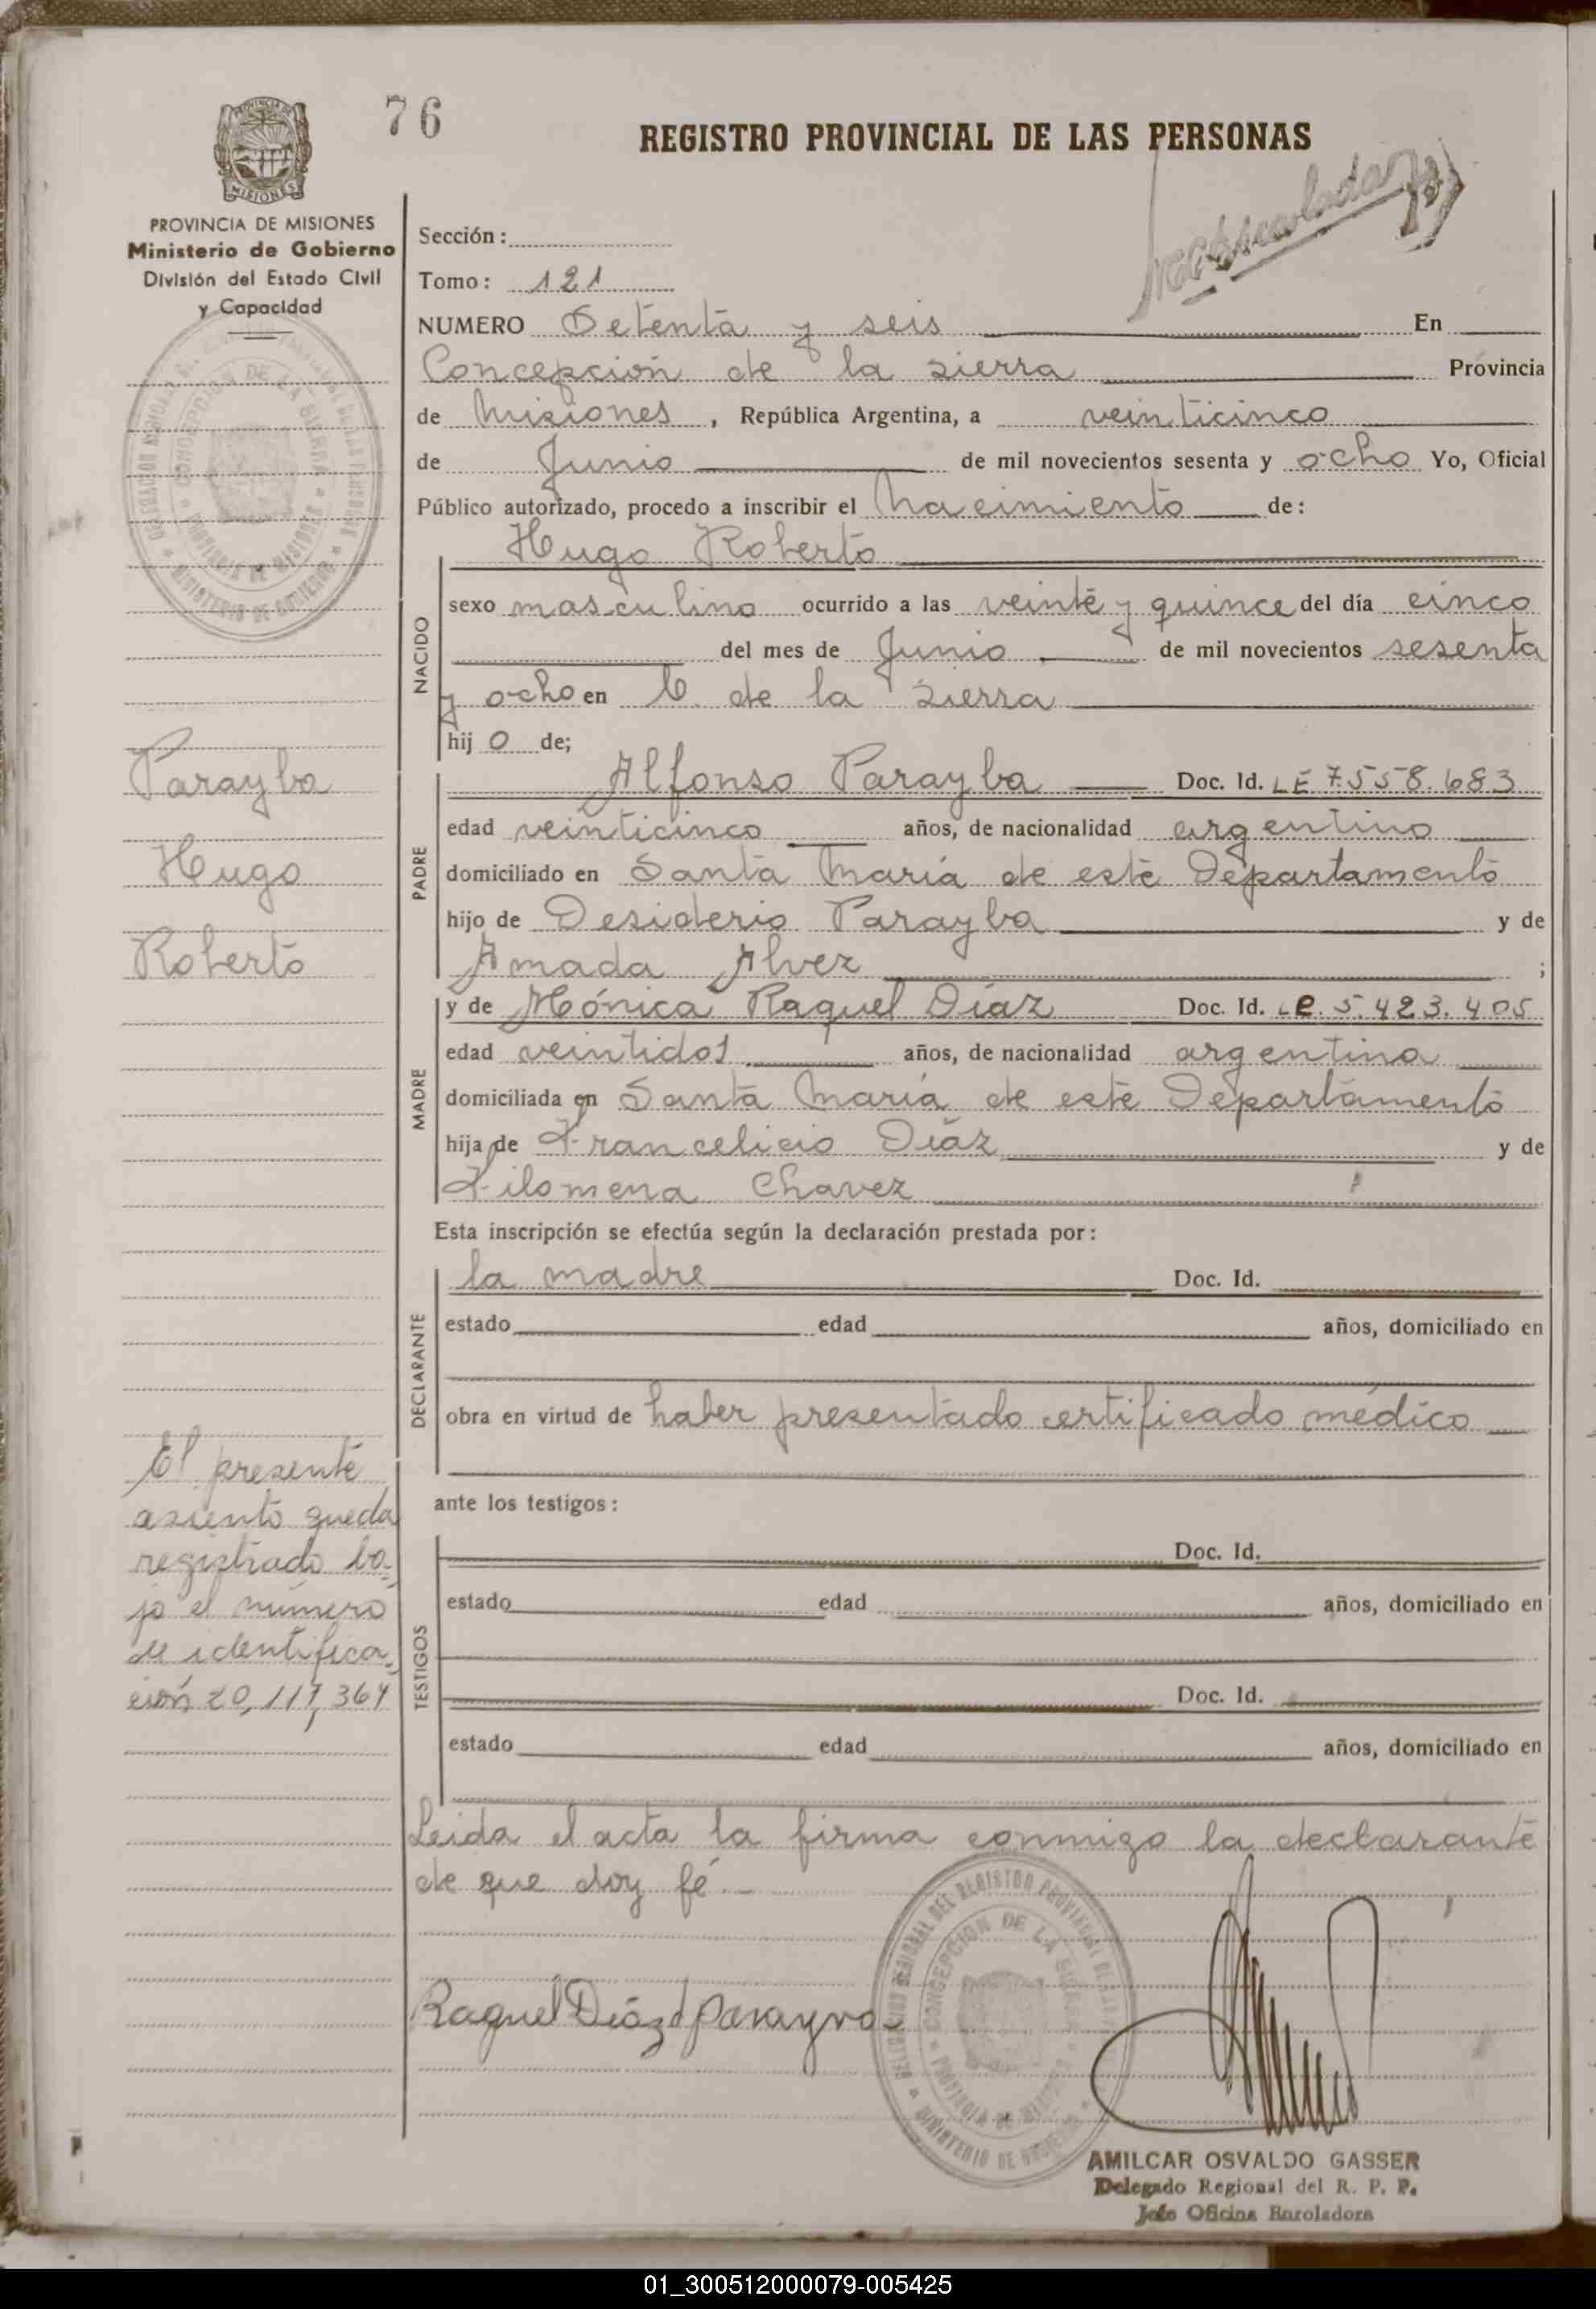 76
REGISTRO PROVINCIAL DE LAS PERSONAS
MISIONES
PROVINCIA DE MISIONES
Ministerio de Gobierno
División del Estado Civil
y Capacidad
Sección:
Tomo: 121
NUMERO Setenta y seis En
Concepción de la Sierra Provincia
de Misiones, República Argentina, a veinticinco
de Junio de mil novecientos sesenta y ocho Yo, Oficial
Público autorizado, procedo a inscribir el Nacimiento de:
Hugo Roberto
NACIDO
sexo masculino ocurrido a las veinte y quince del día cinco
del mes de Junio de mil novecientos sesenta
y ocho en C. de la Sierra
hij o de;
Parayba
Hugo
Roberto
PADRE
Alfonso Parayba Doc. Id. LE 7.558.683
edad veinticinco años, de nacionalidad argentino
domiciliado en Santa María de este Departamento
hijo de Desiderio Parayba y de
Amada Alvez ;
MADRE
y de Mónica Raquel Díaz Doc. Id. LC. 5.423.405
edad veintidos años, de nacionalidad argentina
domiciliada en Santa María de este Departamento
hija de Francelicio Díaz y de
Filomena Chavez
Esta inscripción se efectúa según la declaración prestada por:
DECLARANTE
la madre Doc. Id.
estado edad años, domiciliado en
obra en virtud de haber presentado certificado médico
El presente
asiento queda
registrado ba-
jo el número
de identifica-
ción 20,117,364
ante los testigos:
TESTIGOS
Doc. Id.
estado edad años, domiciliado en
Doc. Id.
estado edad años, domiciliado en
Leida el acta la firma conmigo la declarante
de que doy fé.-
Raquel Diáz d Parayva
CONCEPCION DE LA SIERRA
PROVINCIA DE MISIONES
MINISTERIO DE GOBIERNO
AMILCAR OSVALDO GASSER
Delegado Regional del R. P. P.
Jefe Oficina Enroladora
01_300512000079-005425